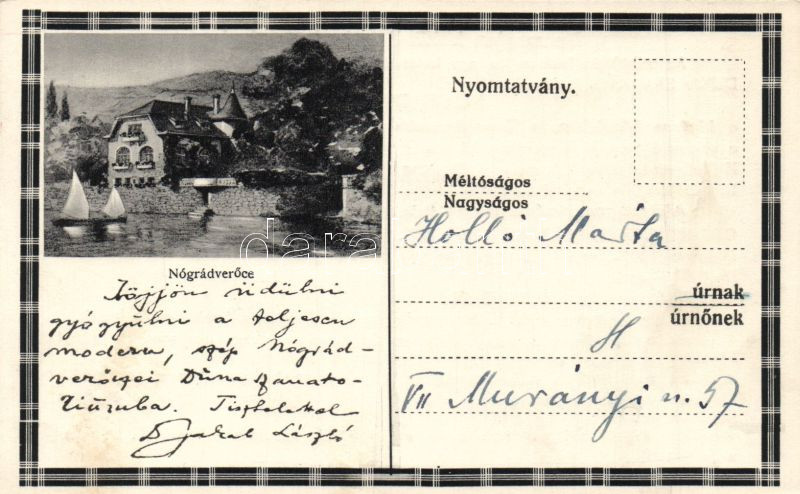 Nógrádverőce
Jőjjön üdülni
gyógyulni a teljesen
modern, szép Nógrád-
verőczei Duna szanato-
riumba. Tisztelettel
D Jakab László
Nyomtatvány.
Méltóságos
Nagyságos
Holló Márta
úrnak
úrnőnek
H
VII Murányi u. 57
darabanth